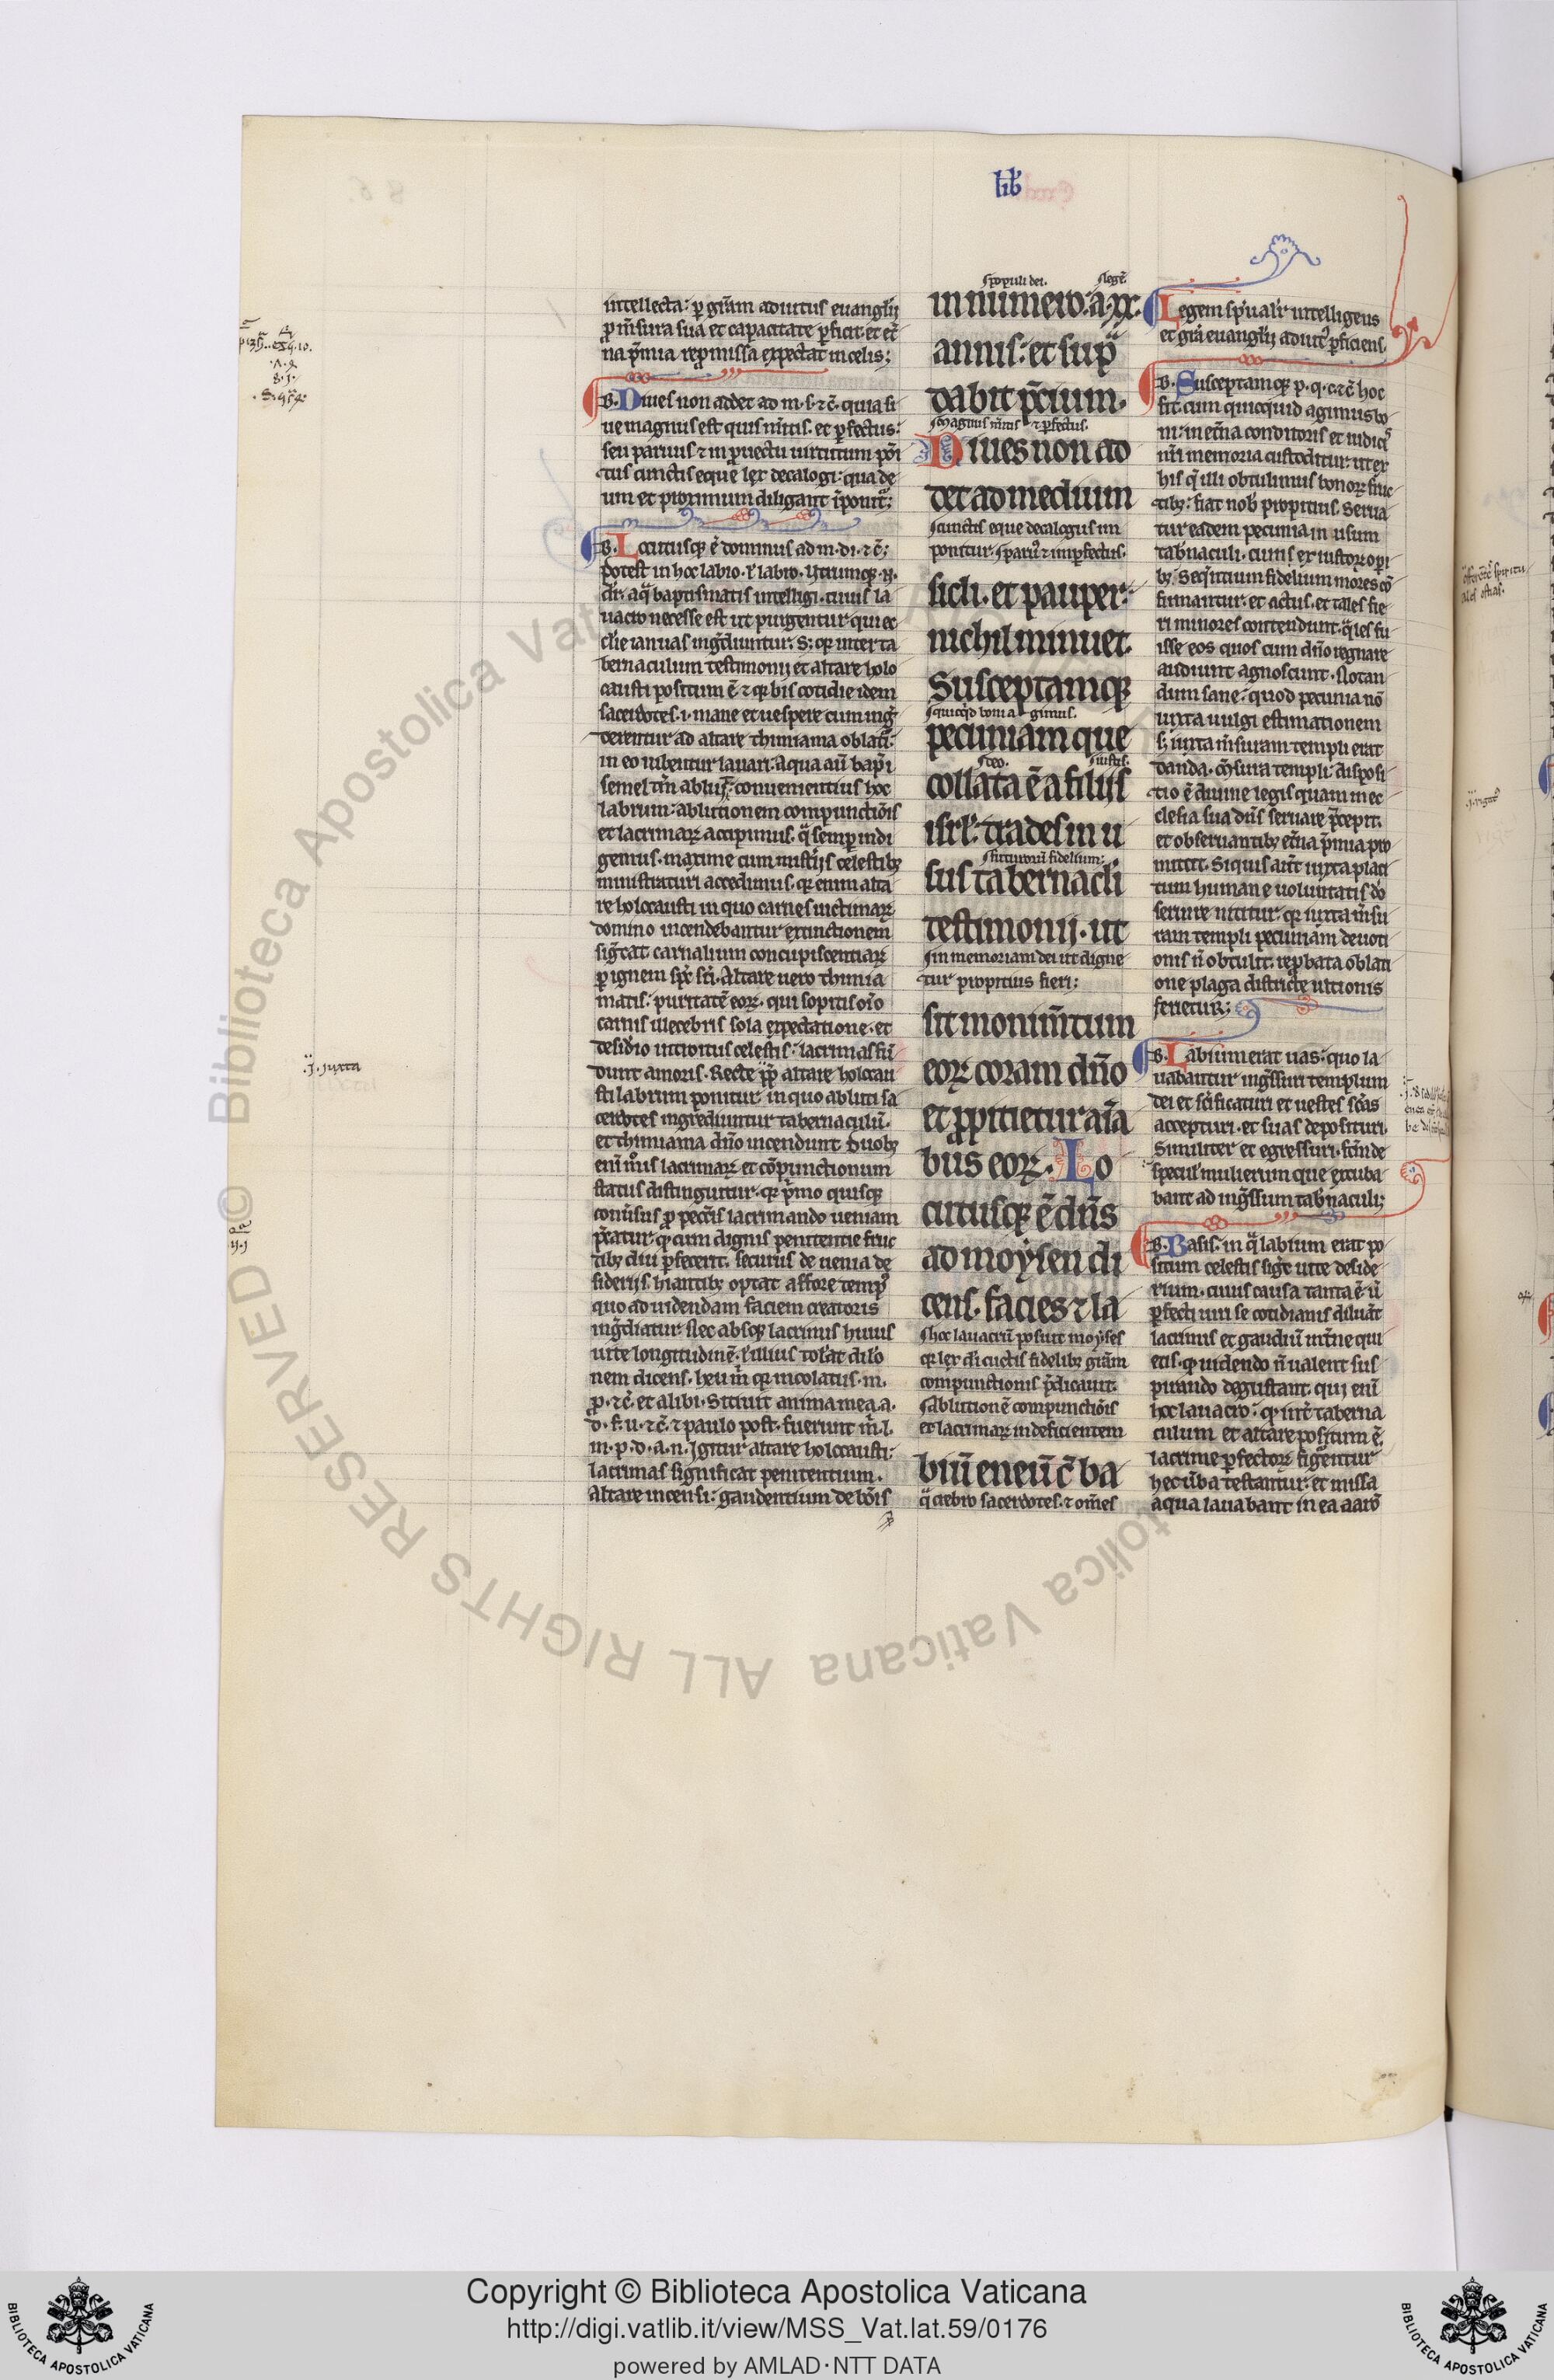 lib̅
intellecta: ꝑ gr̅am adiutus euangl̅ij
ꝓ m̅sura sua et capacitate ꝑficit. et et̅
na p̅mia repmissa expectat in celis;
B. Diues non addet ad m. s. ⁊c̅. quia si
ue magnus est quis m̅itis. et ꝑfectus:
seu paruus ⁊ in ꝓuectu uirtutum po̅i
tus cunctis eque lex decalogi: qua de
um et proximum diligant i̅ponit᷑;
B. Locutusq; e̅ dominus ad m. di. ⁊c̅;
potest in hoc labio. ł labro.
aq̅ baptismatis intelligi. cuius la
uacro necesse est ut purgentur qui ec
clie ianuas ing̅diuntur. S; qꝛ inter ta
bernaculum testimonij et altare holo
causti positum e̅ ⁊ qꝛ bis cotidie idem
sacerdotes .i. mane et uespere cum ing̅
derentur ad altare thimiama oblat̅i:
in eo iubentur lauari: aqua au̅ bap̅i
semel tm̅ abluit᷑: conuenientius hoc
labrum: ablutionem compunctio̅is
et lacrimaꝝ accipimus. q̅ semꝑ indi
gemus. maxime cum mist̅ijs celestibꝫ
ministraturi accedimus. qꝛ enim alta
re holocausti in quo carnes uictimaꝝ
domino incendebantur extinctionem
sig̅tat carnalium concupiscentiaꝝ
ꝑ ignem sp̅c sc̅i. Altare uero thimia
matis: puritate̅ eoꝝ. qui sopitis oi̅o
carnis illecebris sola expectatione. et
desiderio introitus celestis: lacrimas fu̅
dunt amoris. Recte ꝓp̅ altare holocau
sti labrum ponitur in quo abluti sa
cerdotes ingrediuntur tabernaculu̅.
et thimiama dn̅o incendunt. Duobꝫ
eni̅ mo̅is lacrimaꝝ et co̅punctionum
status distinguitur. qꝛ p̅mo quisque
conu̅sus ꝓ pecc̅is lacrimando ueniam
p̅catur. q̇ cum dignis penitentie fruc
tibꝫ diu ꝑfecerit. securus de uenia de
siderijs hiantibꝫ optat affore temp᷒
quo ad uidendam faciem creatoris
ing̅diatur. Nec absqꝫ lacrimis huius
uite longitudine̅. ł illius tol̅at dil̅o
nem dicens. heu m̅ qꝛ incolatus .m.
ꝓ. ⁊c̅. et alibi. Sitiuit anima mea .a.
d. f. u. ⁊c̅. ⁊ paulo post. fuerunt m̅. l.
m. p. d. a. n. Igitur altare holocausti:
lacrimas significat penitentium.
Altare incensi: gaudentium de bo̅is
populi dei. lege̅
in numero. a .xx.
annis: et supᷓ
dabit p̅cium.
magnus m̅itis ⁊ ꝑfectus.
Diues non ad
det ad medium
cunctis eque decalogus im
ponitur. paru᷒ ⁊ imꝑfectus.
sicli. et pauper:
nichil minuet.
Susceptamqꝫ
quicq̇d boni agimus.
pecuniam que
deo. iustis.
collata e̅ a filijs
isrl̅: trades in u
futuroru̅ fidelium:
sus tabernacl̅i
testimonij. ut
in memoriam dei ut digne
tur propitius fieri:
sit monim̅tum
eoꝝ coram dn̅o
et ꝓpitietur ai̅a
bus eoꝝ. Lo
cutusqꝫ e̅ dn̅s
ad moẏsen di
cens. facies ⁊ la
hoc lauacru̅ posuit moyses
qꝛ lex d̅i cu̅ctis fidelibꝫ gr̅am
compunctionis p̅dicauit.
ablutione̅ compunctio̅is
et lacrimaꝝ indeficientem
biu̅ eneu̅ c̅ ba
q̅ crebro sacerdotes. ⁊ om̅es
Legem sp̅ual̅r intelligens
et gr̅a euangl̅ij adiut᷒ ꝑficiens.
B. Susceptamqꝫ p. q. c. ⁊c̅. hoc
fit. cum quicquid agimus bo
ni: in et̅na conditoris et iudicis
nr̅i memoria custoditur. ut ex
his q̅ illi obtulimus bonoꝝ fruc
tibꝫ: fiat nob̅ propitius. Serua
tur eadem pecunia in usum
tab̅naculi. cum s; ex iustoꝝ oꝑi
bꝫ. Seq̅ntium fidelium mores co̅
firmantur. et actus. et tales fie
ri minores contendunt. q̅les fu
isse eos quos cum dn̅o regnare
audiunt agnoscunt. Notan
dum sane: quod pecunia no̅
iuxta uulgi estimationem
s; iuxta m̅suram templi erat
danda. M̅sura templi: disposi
tio e̅ diuine legis quam in ec
clesia sua dn̅s seruare p̅cepit.
et obseruantibꝫ et̅na p̅mia pro
mittit. Siquis aut̅ iuxta placi
tum humane uoluntatis d̅o
seruire nititur. qꝛ iuxta m̅su
ram templi pecuniam deuoti
onis n̅ obtulit. reꝓbata oblati
one plaga districte ultionis
ferietur;
B. Labium erat uas: quo la
uabantur ing̅ssuri templum
dei et sc̅ificaturi et uestes sc̅as
accepturi. et suas deposituri.
Similiter et egressuri.
specul̅ mulierum que excuba
bant ad ing̅ssum tab̅naculi;
B. Basis. in q̅ labium erat po
situm celestis sig̅t uite deside
rium. cuius causa tanta e̅ u̅
ꝑfecti uiri se cotidianis diluu̅t
lacrimis et gaudiu̅ int̅ne qui
etis. q̇ uidendo n̅ ualent sus
pirando degustant. qui eni̅
hoc lauacro: q̇ int̅ taberna
culum et altare positum e̅.
lacrime ꝑfectoꝝ fig̅entur
hec u̅ba testantur. et missa
aqua lauabant in ea aaro̅
.j. iuxta